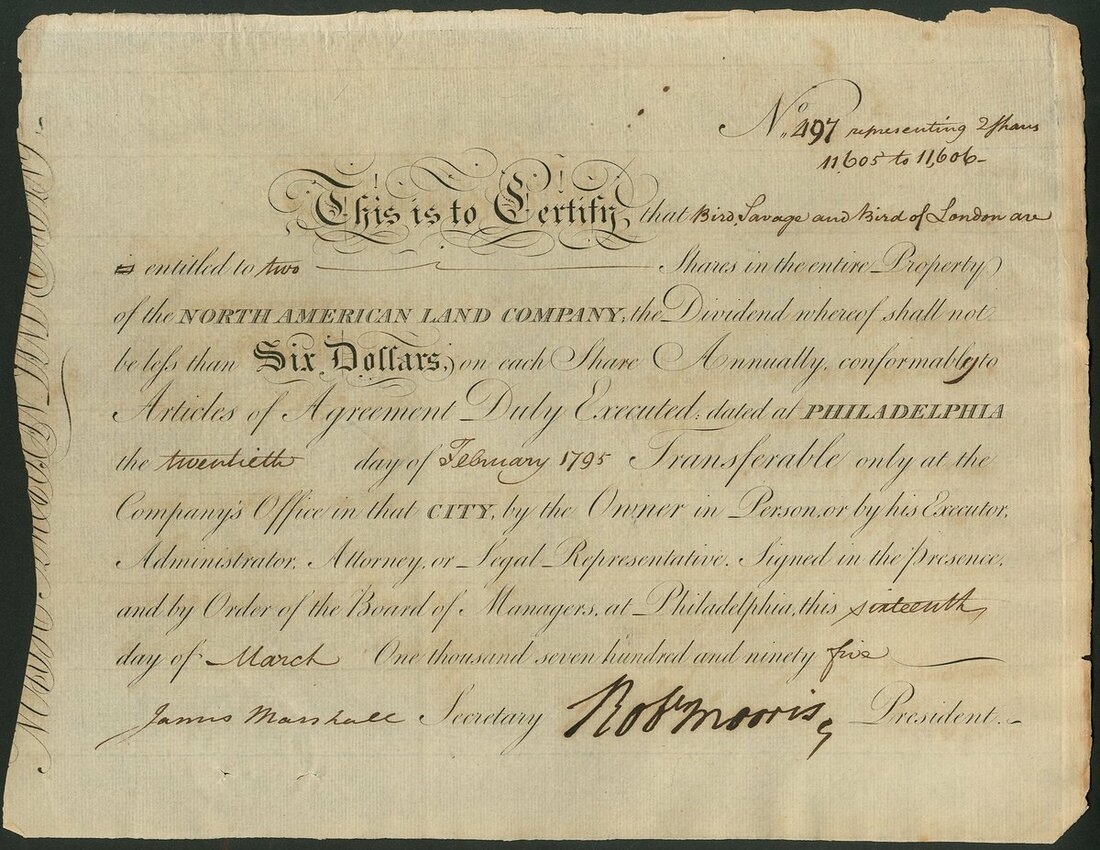 No. 497 representing 2 Shares
11,605 to 11,606-
This is to Certify, that Bird, Savage and Bird of London are
is entitled to two Shares in the entire Property
of the NORTH AMERICAN LAND COMPANY, the Dividend whereof shall not
be less than Six Dollars, on each Share Annually, conformably to
Articles of Agreement Duly Executed; dated at PHILADELPHIA
the twentieth day of February 1795 Transferable only at the
Company's Office in that CITY, by the Owner in Person, or by his Executor,
Administrator, Attorney, or Legal Representative. Signed in the presence,
and by Order of the Board of Managers, at Philadelphia, this sixteenth
day of March One thousand seven hundred and ninety five
James Marshall Secretary Robt Morris, President.